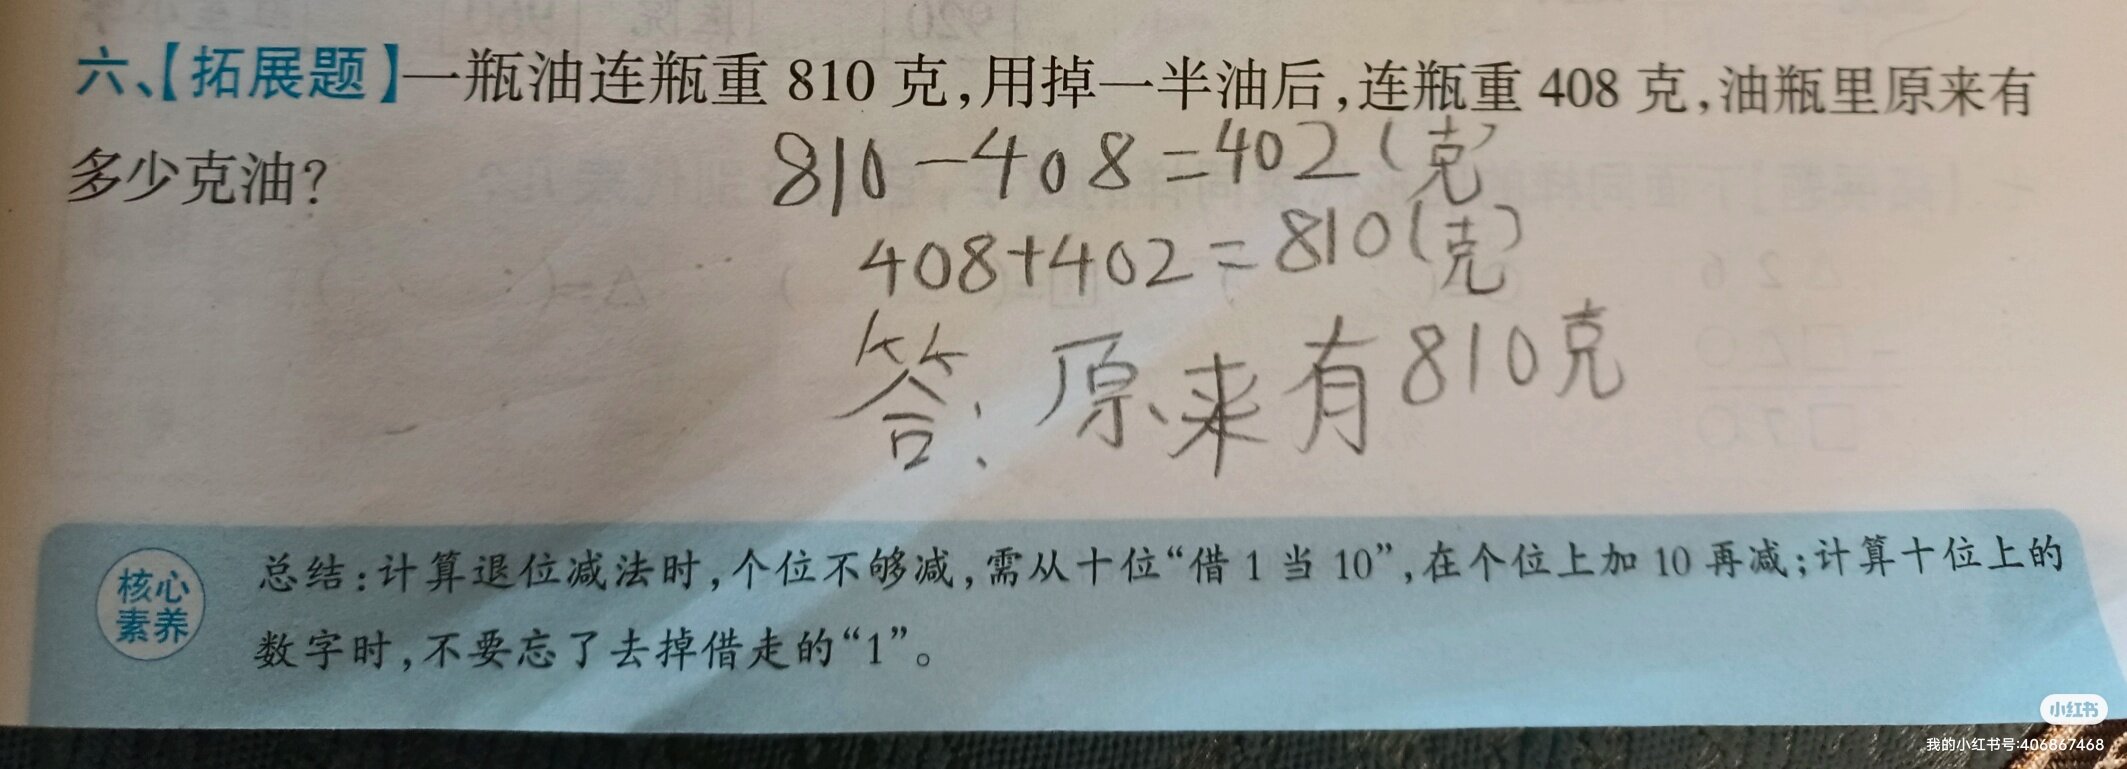 六、【拓展题】一瓶油连瓶重 810 克,用掉一半油后,连瓶重 408 克,油瓶里原来有
多少克油?
810-408=402(克)
408+402=810(克)
答:原来有810克
核心
素养
总结:计算退位减法时,个位不够减,需从十位“借 1 当 10”,在个位上加 10 再减;计算十位上的
数字时,不要忘了去掉借走的“1”。
小红书
我的小红书号:406867468